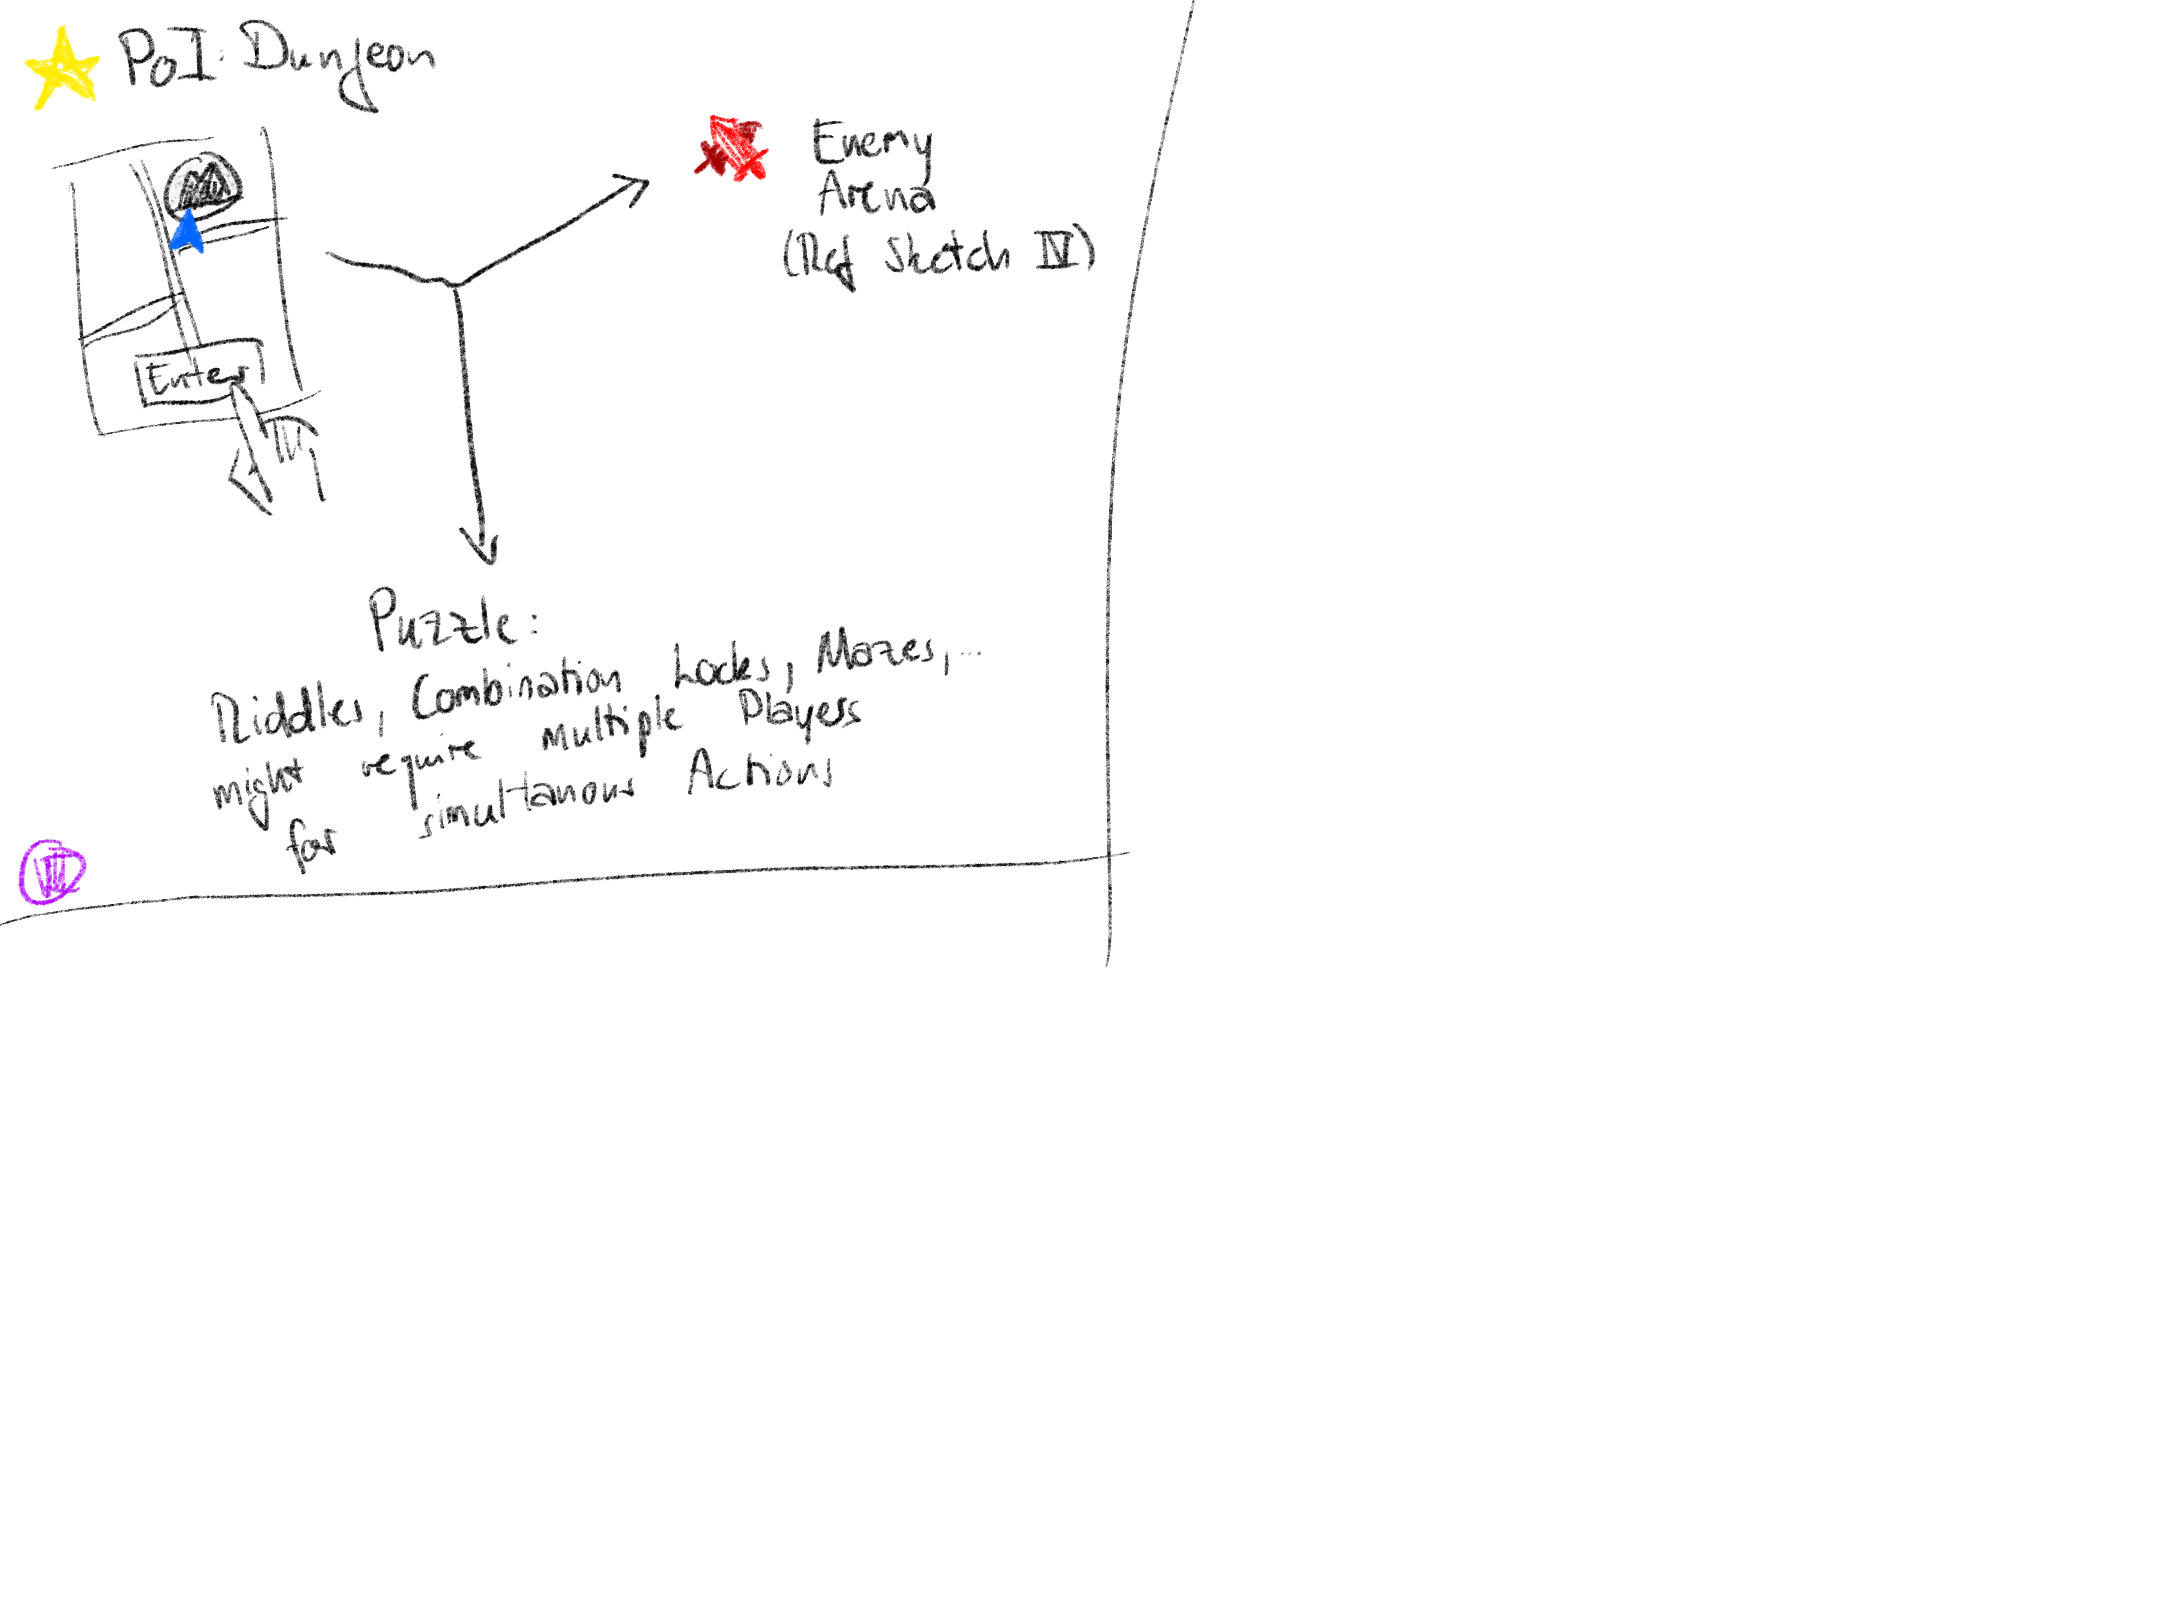 PoI: Dungeon
Enemy
Arena
(Ref Sketch IV)
Enter
Puzzle:
Riddles, Combination Locks, Mazes,...
might require multiple Players
for simultanous Actions